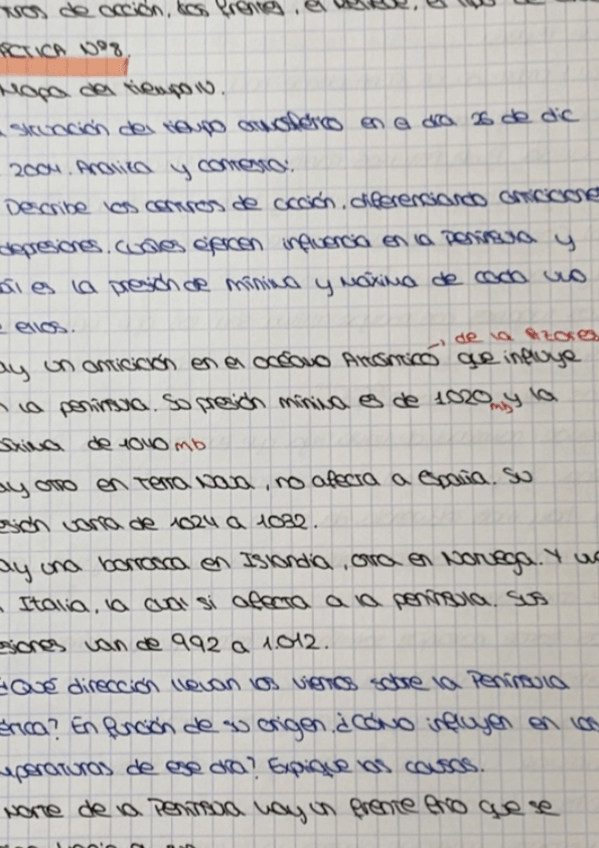 de acción, los frentes, el relieve, el tipo de
ACTICA Nº8.
Mapa del tiempo IV.
situación del tiempo atmosférico en el día 26 de dic
2004. Analiza y contesta:
Describe los centros de acción, diferenciando anticiclone
depresiones. Cuáles ejercen influencia en la Península y
ál es la presión de mínima y máxima de cada uno
ellos.
, de la Azores
ay un anticiclón en el océano Atlántico que influye
n la península. Su presión mínima es de 1020 mb y la
áxima de 1040 mb
ay otro en Terra Nova, no afecta a España. Su
esión varía de 1024 a 1032.
ay una borrasca en Islandia, otra en Noruega. Y un
Italia, la cual si afecta a la península. Sus
esiones van de 992 a 1.012.
¿Qué dirección llevan los vientos sobre la Península
érica? En función de su origen, ¿Cómo influyen en las
mperaturas de ese día? Explique las causas.
Norte de la Península hay un frente frío que se